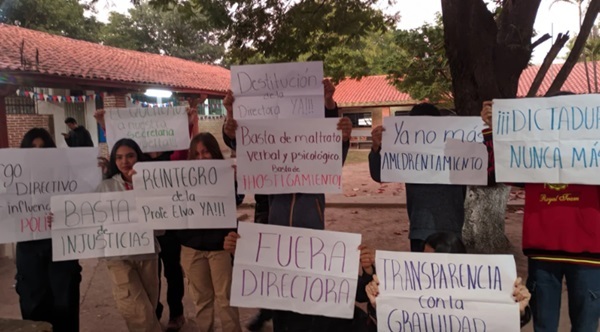 Destitución
de la
Directora YA!!!
Basta de maltrato
verbal y psicológico
Basta de
HOSTIGAMIENTO!
nuestra
Secretaria
Ya no más
AMEDRENTAMIENTO
¡¡¡DICTADU
NUNCA MÁS
go
DIRECTIVO
influen
POLÍ
BASTA
de
INJUSTICIAS
REINTEGRO
de la
Profe. Elva YA!!!
FUERA
DIRECTORA
TRANSPARENCIA
con la
GRATUIDAD
Royal Team